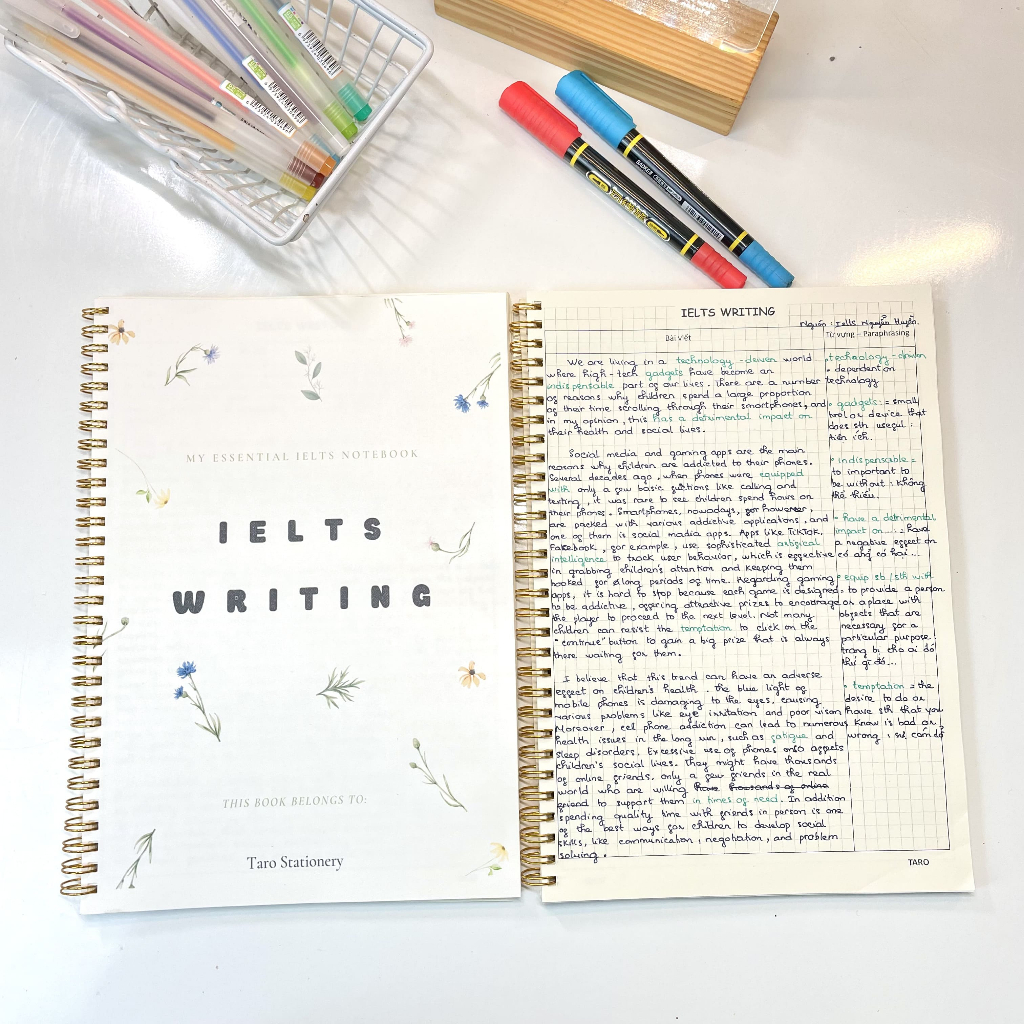 MY ESSENTIAL IELTS NOTEBOOK
IELTS
WRITING
THIS BOOK BELONGS TO:
Taro Stationery
IELTS WRITING
Nguồn: Ielts Nguyễn Huyền.
Bài Viết
Từ vựng - Paraphrasing
We are living in a technology-driven world
where high-tech gadgets have become an
indispensable part of our lives. There are a number
of reasons why children spend a large proportion
of their time scrolling through their smartphones, and
in my opinion, this has a detrimental impact on
their health and social lives.
Social media and gaming apps are the main
reasons why children are addicted to their phones.
Several decades ago, when phones were equipped
with only a few basic functions like calling and
texting, it was rare to see children spend hours on
their phones. Smartphones, nowadays, however,
are packed with various addictive applications, and
one of them is social media apps. Apps like TikTok,
Facebook, for example, use sophisticated artificial
intelligence to track user behavior, which is effective
in grabbing children's attention and keeping them
hooked for long periods of time. Regarding gaming
apps, it is hard to stop because each game is designed
to be addictive, offering attractive prizes to encourage
the player to proceed to the next level. Not many
children can resist the temptation to click on the
"continue" button to gain a big prize that is always
there waiting for them.
I believe that this trend can have an adverse
effect on children's health. The blue light of
mobile phones is damaging to the eyes, cruising
various problems like eye irritation and poor vision
Moreover, cell phone addiction can lead to numerous
health issues in the long run, such as fatigue and
sleep disorders. Excessive use of phones also affects
children's social lives. They might have thousands
of online friends, only a few friends in the real
world who are willing have thousands of online
friend to support them in times of need. In addition
spending quality time with friends in person is one
of the best ways for children to develop social
skills, like communication, negotiation, and problem
solving.
technology-driven
= dependent on
technology.
gadgets: = small
tool or device that
does sth useful:
tiện ích..
indispensable =
to important to
be without: không
thể thiếu.
have a detrimental
impact on...: have
a negative effect on
có ảnh có hại...
equip sb/sth with
to provide a person
or a place with
objects that are
necessary for a
particular purpose:
trang bị cho ai đó
thứ gì đó...
temptation = the
desire to do or
have sth that you
know is bad or
wrong: sự cám dỗ
TARO